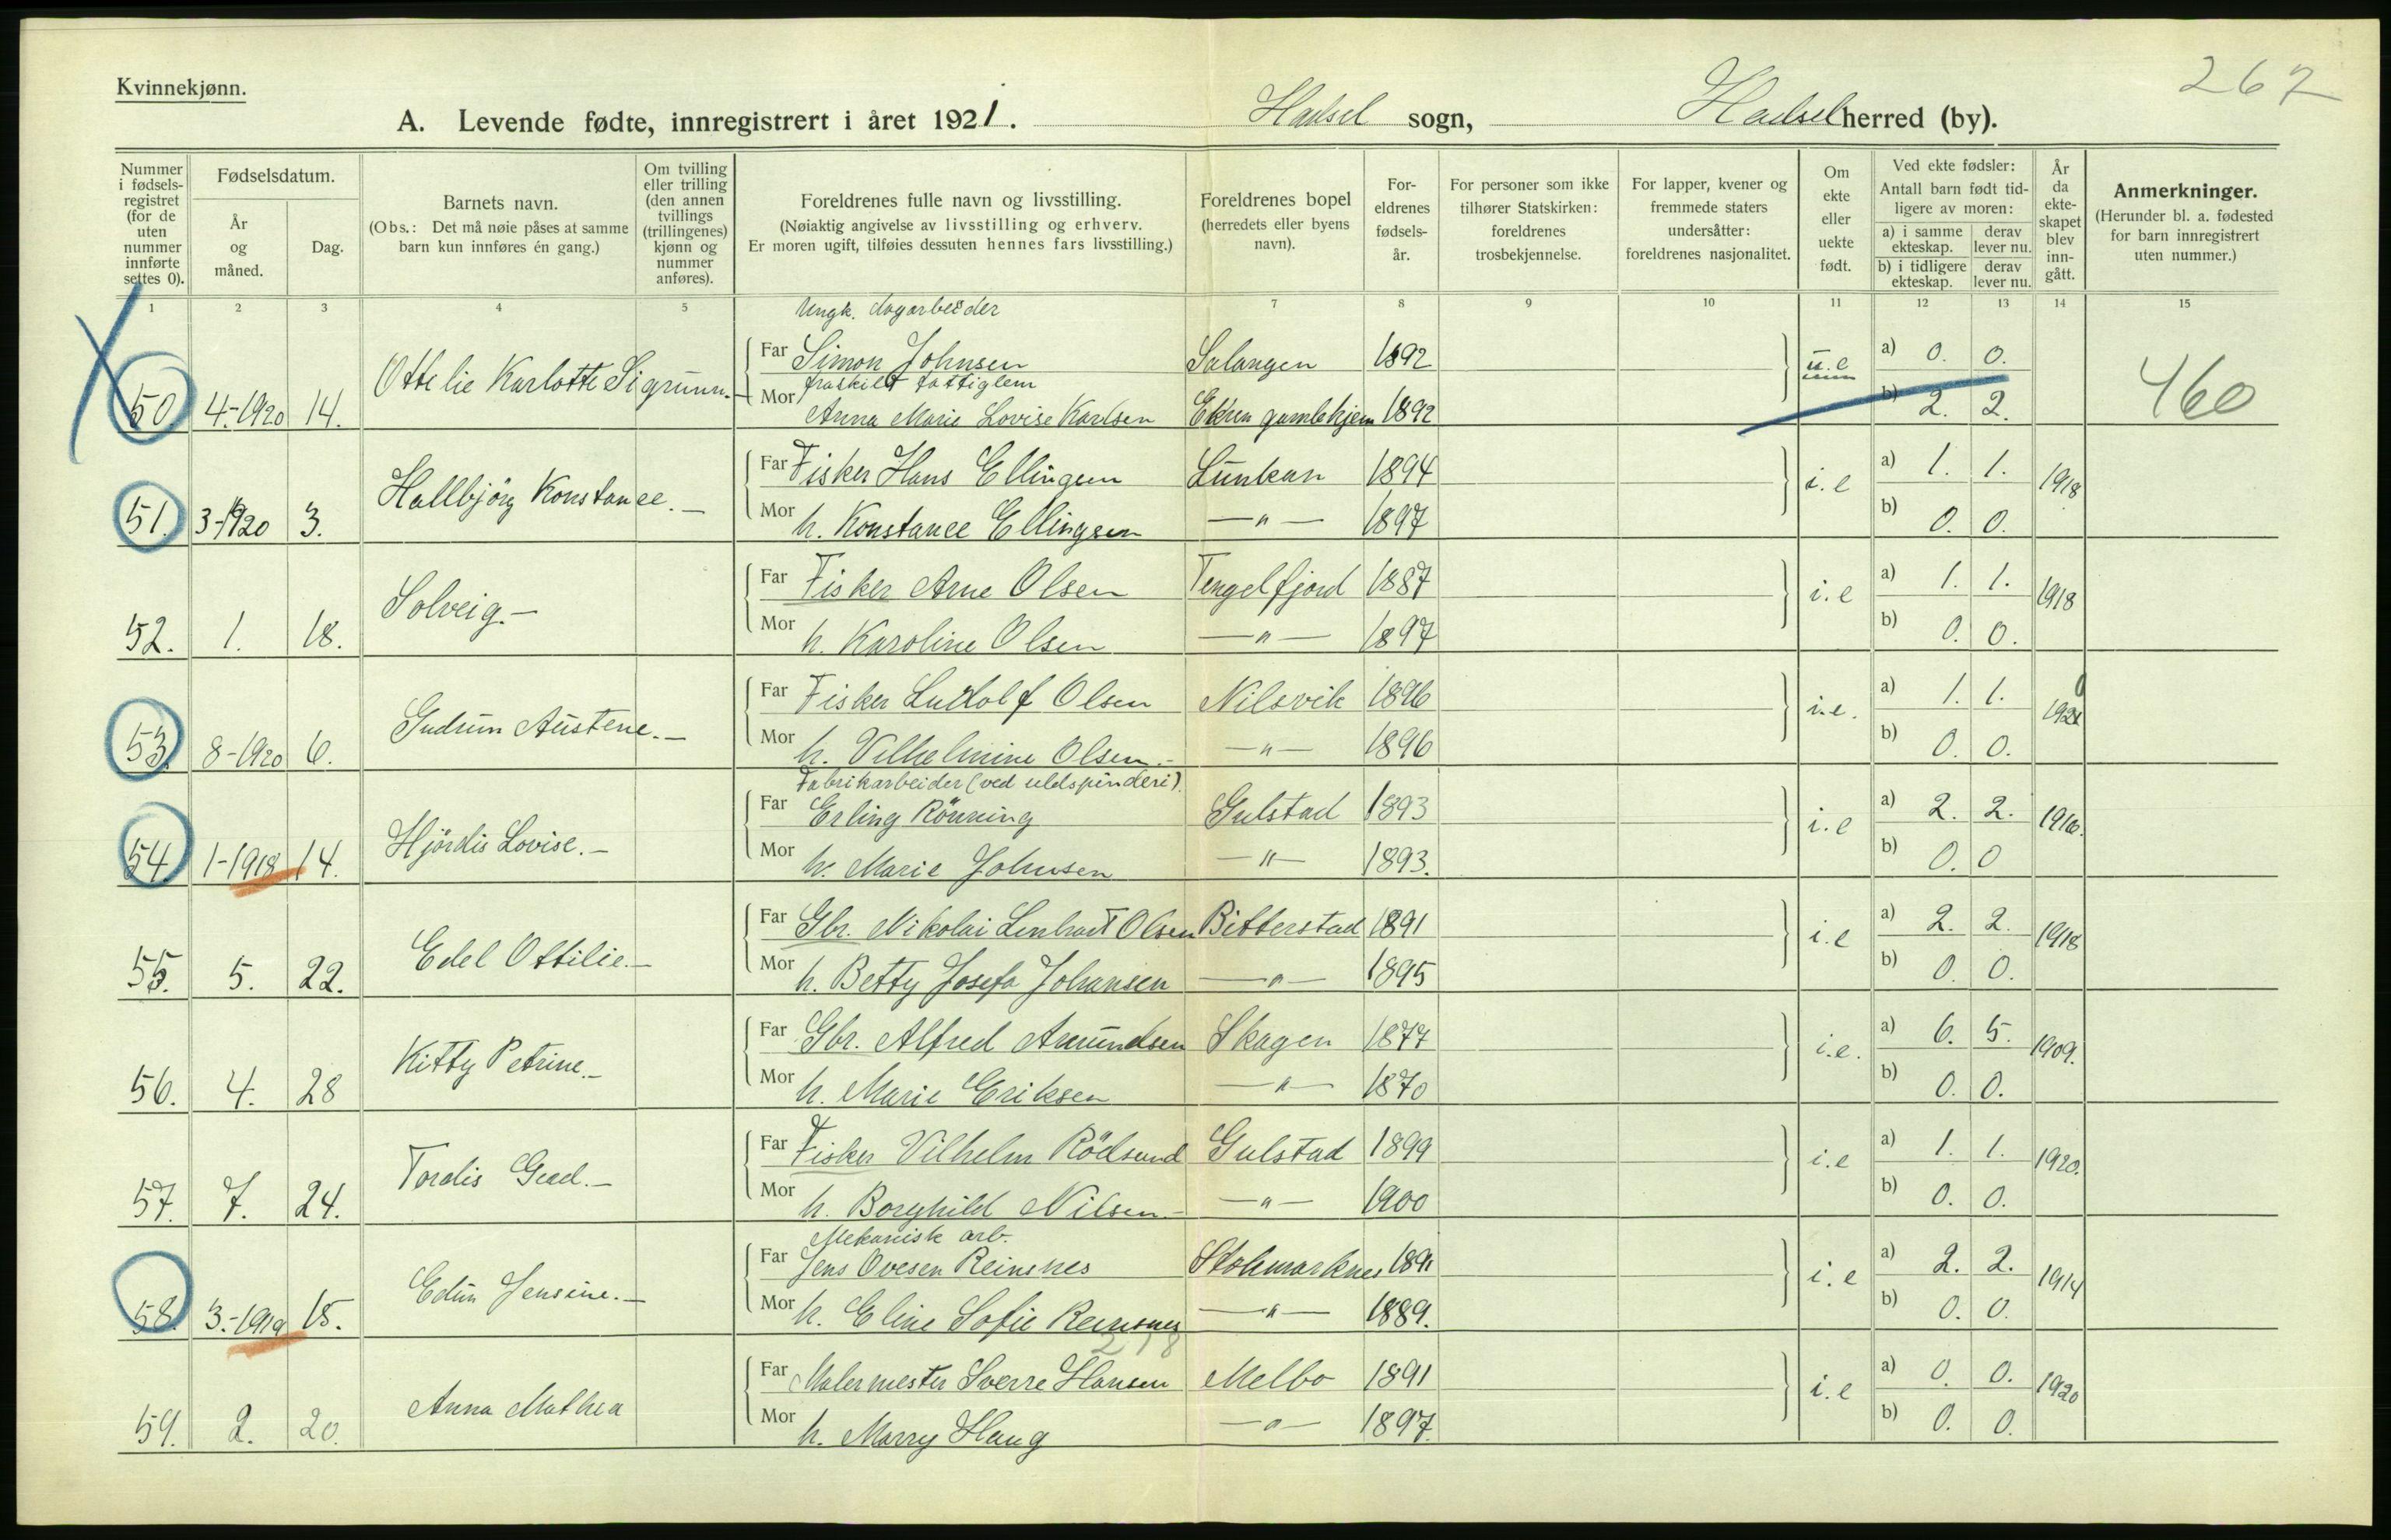 267
Kvinnekjønn.
A. Levende fødte, innregistrert i året 1921. Hadsel sogn, Hadsel herred (by).
Nummer i fødsels-registret (for de uten nummer innførte settes 0).
Fødselsdatum.
År og måned.
Dag.
Barnets navn.
(Obs.: Det må nøie påses at samme barn kun innføres én gang.)
Om tvilling eller trilling (den annen tvillings (trillingenes) kjønn og nummer anføres).
Foreldrenes fulle navn og livsstilling.
(Nøiaktig angivelse av livsstilling og erhverv.
Er moren ugift, tilføies dessuten hennes fars livsstilling.)
Foreldrenes bopel (herredets eller byens navn).
For-eldrenes fødsels-år.
For personer som ikke tilhører Statskirken: foreldrenes trosbekjennelse.
For lapper, kvener og fremmede staters undersåtter: foreldrenes nasjonalitet.
Om ekte eller uekte født.
Ved ekte fødsler:
Antall barn født tid-ligere av moren:
a) i samme ekteskap.
derav lever nu.
b) i tidligere ekteskap.
derav lever nu.
År da ekte-skapet blev inn-gått.
Anmerkninger.
(Herunder bl. a. fødested for barn innregistrert uten nummer.)
1 2 3 4 5 7 8 9 10 11 12 13 14 15
Ungk. dagarbeider
Far Simon Johnsen Salangen 1892 a) 0. 0.
50. 4.-1920 14. Ottelie Karlotte Sigrunn. u.e 460
fraskilt fattiglem
Mor Anna Marie Lovise Karlsen Ekren gamlehjem 1892 b) 2. 2.
Far Fisker Hans Ellingsen Lunkan 1894 a) 1. 1.
51. 3-1920 3. Hallbjörg Konstance.- i.e 1918
Mor h. Konstance Ellingsen -"- 1897 b) 0. 0.
Far Fisker Arne Olsen Tengelfjord 1887 a) 1. 1.
52. 1. 18. Solveig.- i.e 1918
Mor h. Karoline Olsen -"- 1897 b) 0. 0.
Far Fisker Ludolf Olsen Nilsvik 1896 a) 1. 1.
53. 8-1920 6. Gudrun Austene.- i.e.
Mor h. Vilhelmine Olsen.- -"- 1896 b) 0. 0.
Fabrikarbeider (ved uldspinderi).
Far Erling Rönning Gulstad 1893 a) 2. 2.
54. 1-1918 14. Hjördis Lovise.- i.e 1916.
Mor h. Marie Johnsen -"- 1893. b) 0. 0
Far Gbr. Nikolai Lenhart Olsen Bitterstad 1891 a) 2. 2.
55. 5. 22. Edel Ottilie.- i.e 1918
Mor h. Betty Josefa Johansen -"- 1895 b) 0. 0.
Far Gbr. Alfred Amundsen Skagen 1877 a) 6. 5.
56. 4. 28 Kitty Petrine.- i.e. 1909.
Mor h. Marie Eriksen -"- 1870 b) 0. 0.
Far Fisker Vilhelm Rödsand Gulstad 1899 a) 1. 1.
57. 7. 24. Tordis Gead.- i.e 1920.
Mor h. Borghild Nilsen.- -"- 1900 b) 0. 0.
Mekanisk arb.
Far Jens Ovesen Reinsnes Stokmarknes 1891 a) 2. 2.
58. 3.-1919 15. Edun Jensine.- i.e 1914
Mor h. Eline Sofie Reinsnes -"- 1889. b) 0. 0.
Far Malermester Sverre Hansen Melbo 1891 a) 0. 0.
59. 2. 20. Anna Mathea i.e 1920
Mor h. Marry Haug -"- 1897. b) 0. 0.